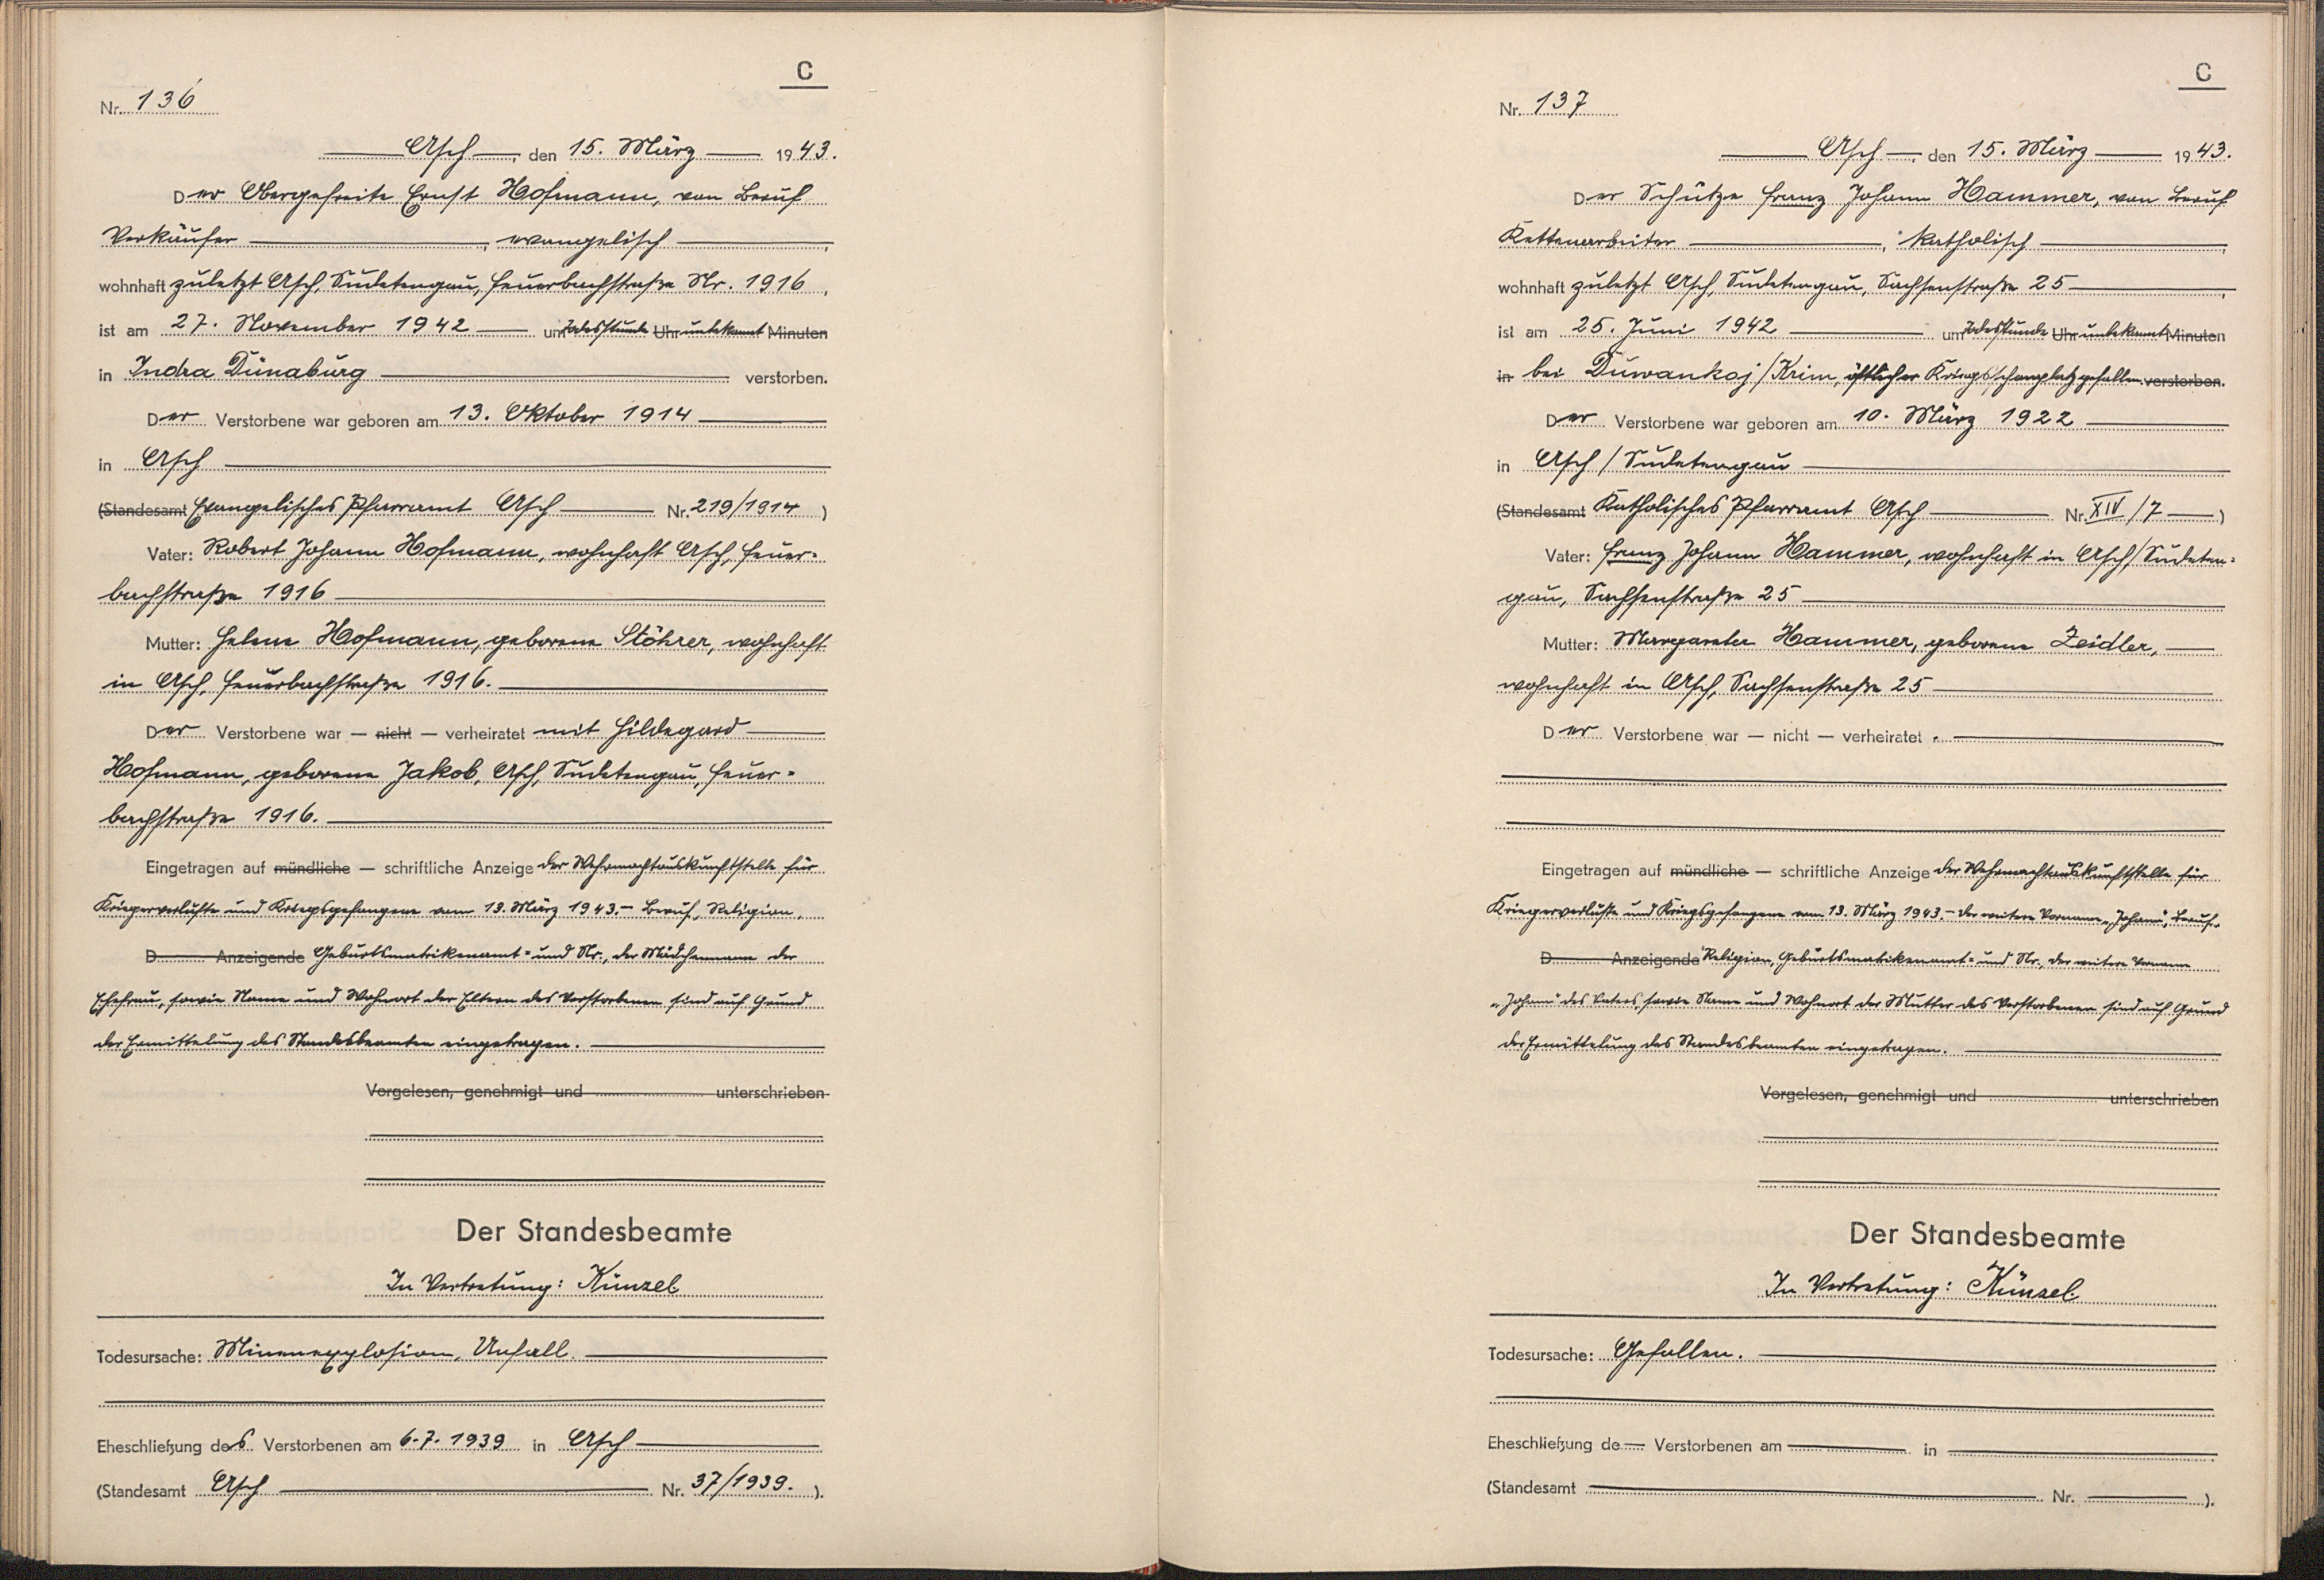 C
Nr. 136
Asch, den 15. März 1943.
Der Obergefreite Ernst Hofmann, von Beruf
Verkäufer, evangelisch,
wohnhaft zuletzt Asch, Sudetengau, Feuerbachstraße Nr. 1916,
ist am 27. November 1942 um Todesstunde Uhr unbekannt Minuten
in Indra Dünaburg verstorben.
Der Verstorbene war geboren am 13. Oktober 1914
in Asch
(Standesamt Evangelisches Pfarramt Asch Nr. 219/1914)
Vater: Robert Johann Hofmann, wohnhaft Asch, Feuer-
bachstraße 1916
Mutter: Helene Hofmann, geborene Stöhrer, wohnhaft
in Asch, Feuerbachstraße 1916.
Der Verstorbene war — nicht — verheiratet mit Hildegard
Hofmann, geborene Jakob, Asch, Sudetengau, Feuer-
bachstraße 1916.
Eingetragen auf mündliche — schriftliche Anzeige der Wehrmachtauskunftstelle für
Kriegerverluste und Kriegsgefangene vom 13. März 1943.- Beruf, Religion,
D Anzeigende Geburtsmatrikenamt- und Nr., der Mädchenname der
Ehefrau, sowie Name und Wohnort der Eltern des Verstorbenen sind auf Grund
der Ermittelung des Standesbeamten eingetragen.
Vorgelesen, genehmigt und unterschrieben
Der Standesbeamte
In Vertretung: Künzel
Todesursache: Minenexplosion, Unfall.
Eheschließung des Verstorbenen am 6.7.1939 in Asch
(Standesamt Asch Nr. 37/1939.).
C
Nr. 137
Asch, den 15. März 1943.
Der Schütze Franz Johann Hammer, von Beruf
Kettenarbeiter, katholisch,
wohnhaft zuletzt Asch, Sudetengau, Sachsenstraße 25,
ist am 25. Juni 1942 um Todesstunde Uhr unbekannt Minuten
in bei Duwankoj/Krim, östlicher Kriegsschauplatz gefallen. verstorben.
Der Verstorbene war geboren am 10. März 1922
in Asch / Sudetengau
(Standesamt Katholisches Pfarramt Asch Nr. XIV/7)
Vater: Franz Johann Hammer, wohnhaft in Asch/Sudeten-
gau, Sachsenstraße 25
Mutter: Margarete Hammer, geborene Zeidler,
wohnhaft in Asch, Sachsenstraße 25
Der Verstorbene war — nicht — verheiratet.
Eingetragen auf mündliche — schriftliche Anzeige der Wehrmachtauskunftstelle für
Kriegerverluste und Kriegsgefangene vom 13. März 1943.- Der weitere Vorname „Johann", Beruf,
D Anzeigende Religion, Geburtsmatrikenamt- und Nr., der weitere Vorname
„Johann" des Vaters, sowie Name und Wohnort der Mutter des Verstorbenen sind auf Grund
der Ermittelung des Standesbeamten eingetragen.
Vorgelesen, genehmigt und unterschrieben
Der Standesbeamte
In Vertretung: Künzel.
Todesursache: Gefallen.
Eheschließung de Verstorbenen am in
(Standesamt Nr. ).